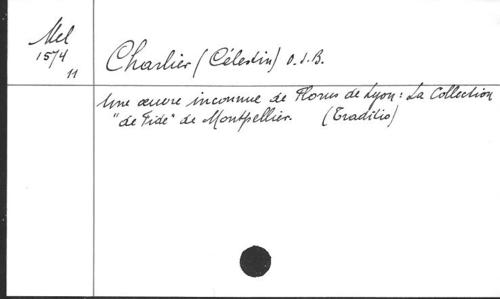 Mel
15/4
11
Charlier (Célestin) O.S.B.
Une œuvre inconnue de Florus de Lyon : La Collection
"de Fide" de Montpellier. (Traditio)